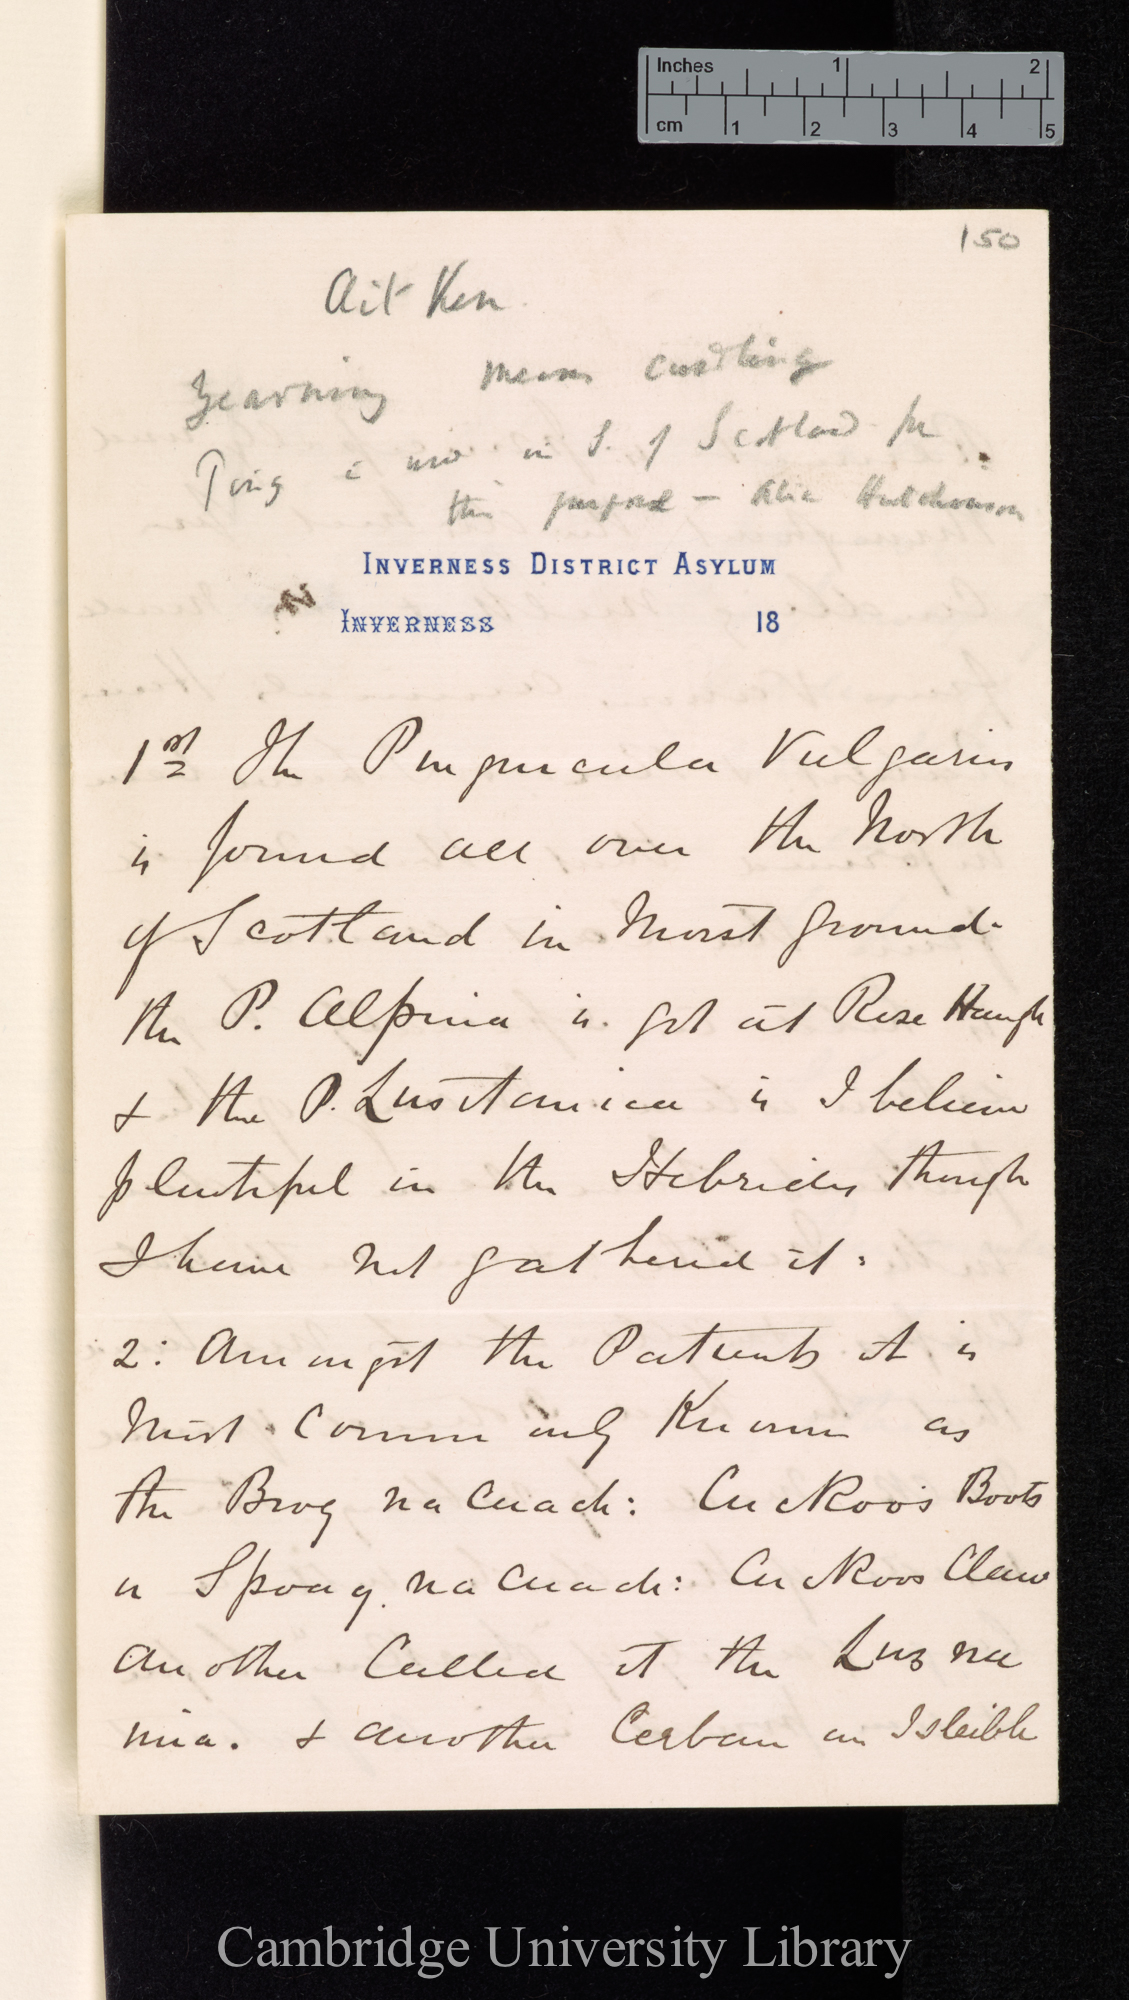 Inches 1 2
cm 1 2 3 4 5
150
Aitken
Yearning means curdling
Ping is used in S. of Scotland for
this purpose — Alic Hutchinson
INVERNESS DISTRICT ASYLUM
INVERNESS 18
1st The Pinguicula Vulgaris
is found all over the North
of Scotland in Moist ground.
the P. Alpina is got at Rose Haugh
& the P. Lusitanica is I believe
plentiful in the Hebrides though
I have not gathered it:
2: Amongst the Patients it is
Most Commonly Known as
the Brog na Cuach: Cuckoo's Boots
or Spoag na Cuach: Cuckoos Claw
another Called it the Lus na
mia. & another Cerban an Isleibh
Cambridge University Library